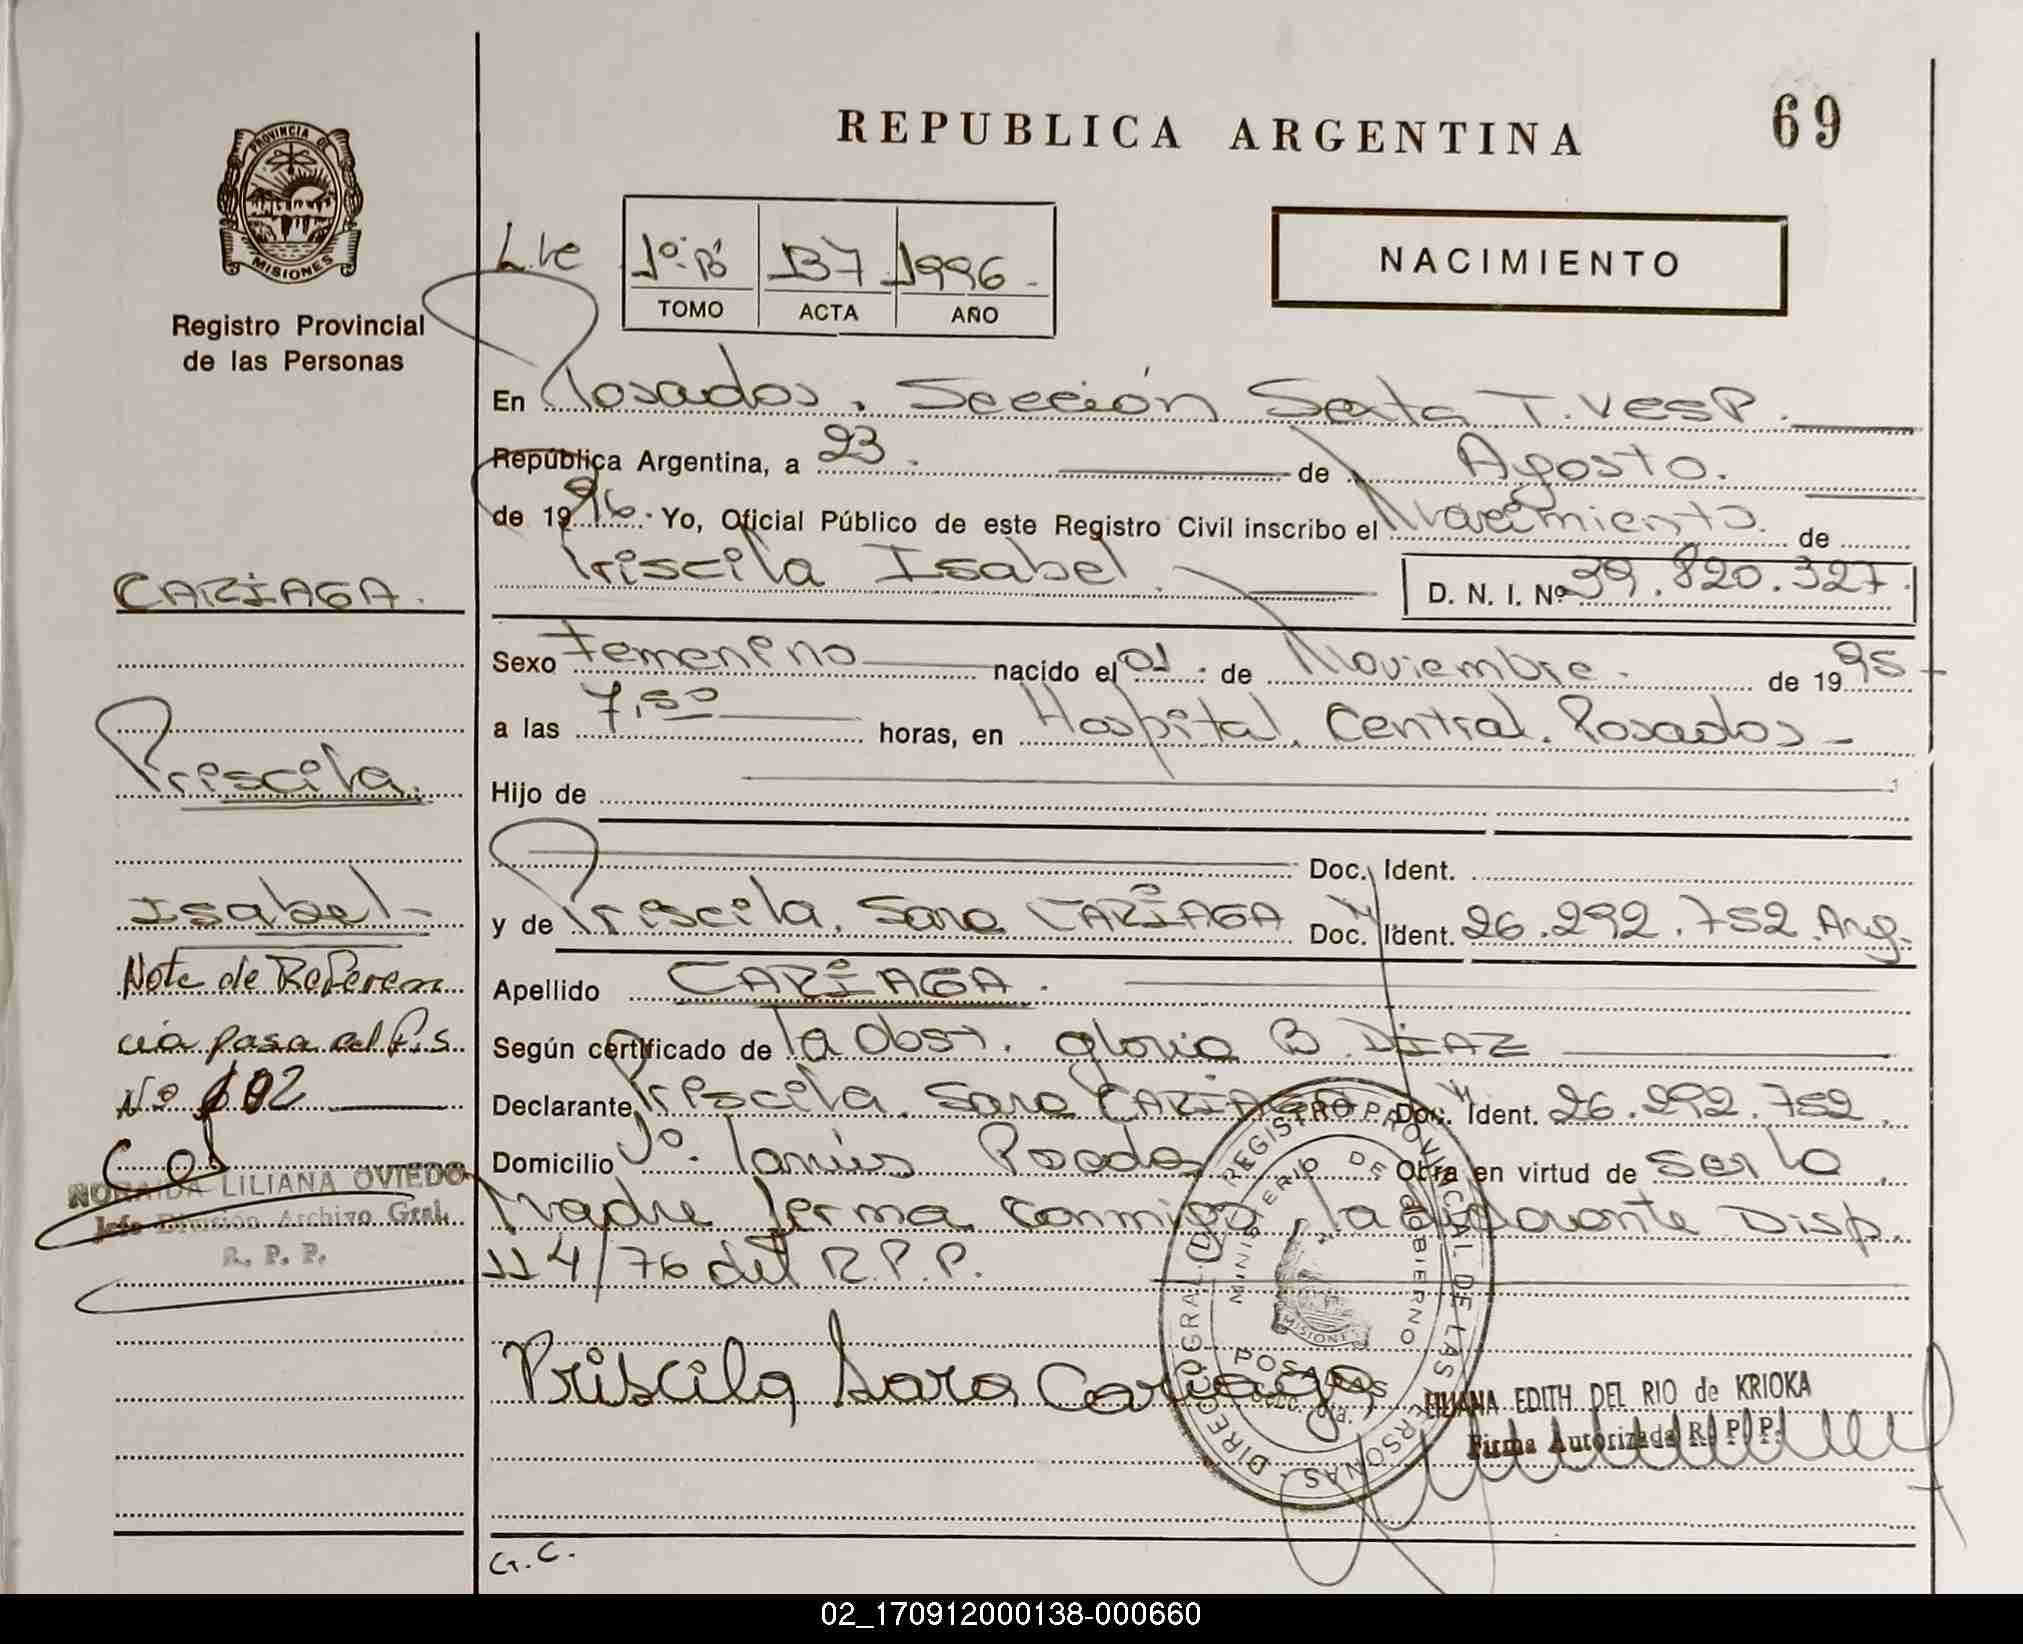 REPUBLICA ARGENTINA
69
PROVINCIA DE
MISIONES
Registro Provincial
de las Personas
1º B
137
1996
TOMO
ACTA
AÑO
NACIMIENTO
En Posadas, Sección Sexta T. Vesp.
República Argentina, a 23 de Agosto.
de 1996. Yo, Oficial Público de este Registro Civil inscribo el Nacimiento de
Priscila Isabel
D. N. I. Nº 39.820.327
Sexo Femenino nacido el 01 de Noviembre de 1995
a las 7,50 horas, en Hospital Central. Posadas
Hijo de
Doc. Ident.
y de Priscila, Sara CARIAGA Doc. Ident. 26.292.752 Arg.
Apellido CARIAGA.
Según certificado de la Obst. Gloria B. DIAZ
Declarante Priscila, Sara CARIAGA Doc. Ident. 26.292.752.
Domicilio Posadas Obra en virtud de ser la
Madre firma conmigo, la Disp.
114/76 del R.P.P.
Priscila Sara Cariaga
LILIANA EDITH DEL RIO de KRIOKA
Firma Autorizada R. P. P.
DIREC. GRAL. DEL REGISTRO PROVINCIAL DE LAS PERSONAS
MINISTERIO DE GOBIERNO
MISIONES
POSADAS
CARIAGA.
Priscila
Isabel
Nota de Referen
cia pasa al f.s.
Nº 102
NORAIDA LILIANA OVIEDO
Jefe División Archivo Gral.
R. P. P.
G. C.
02_170912000138-000660